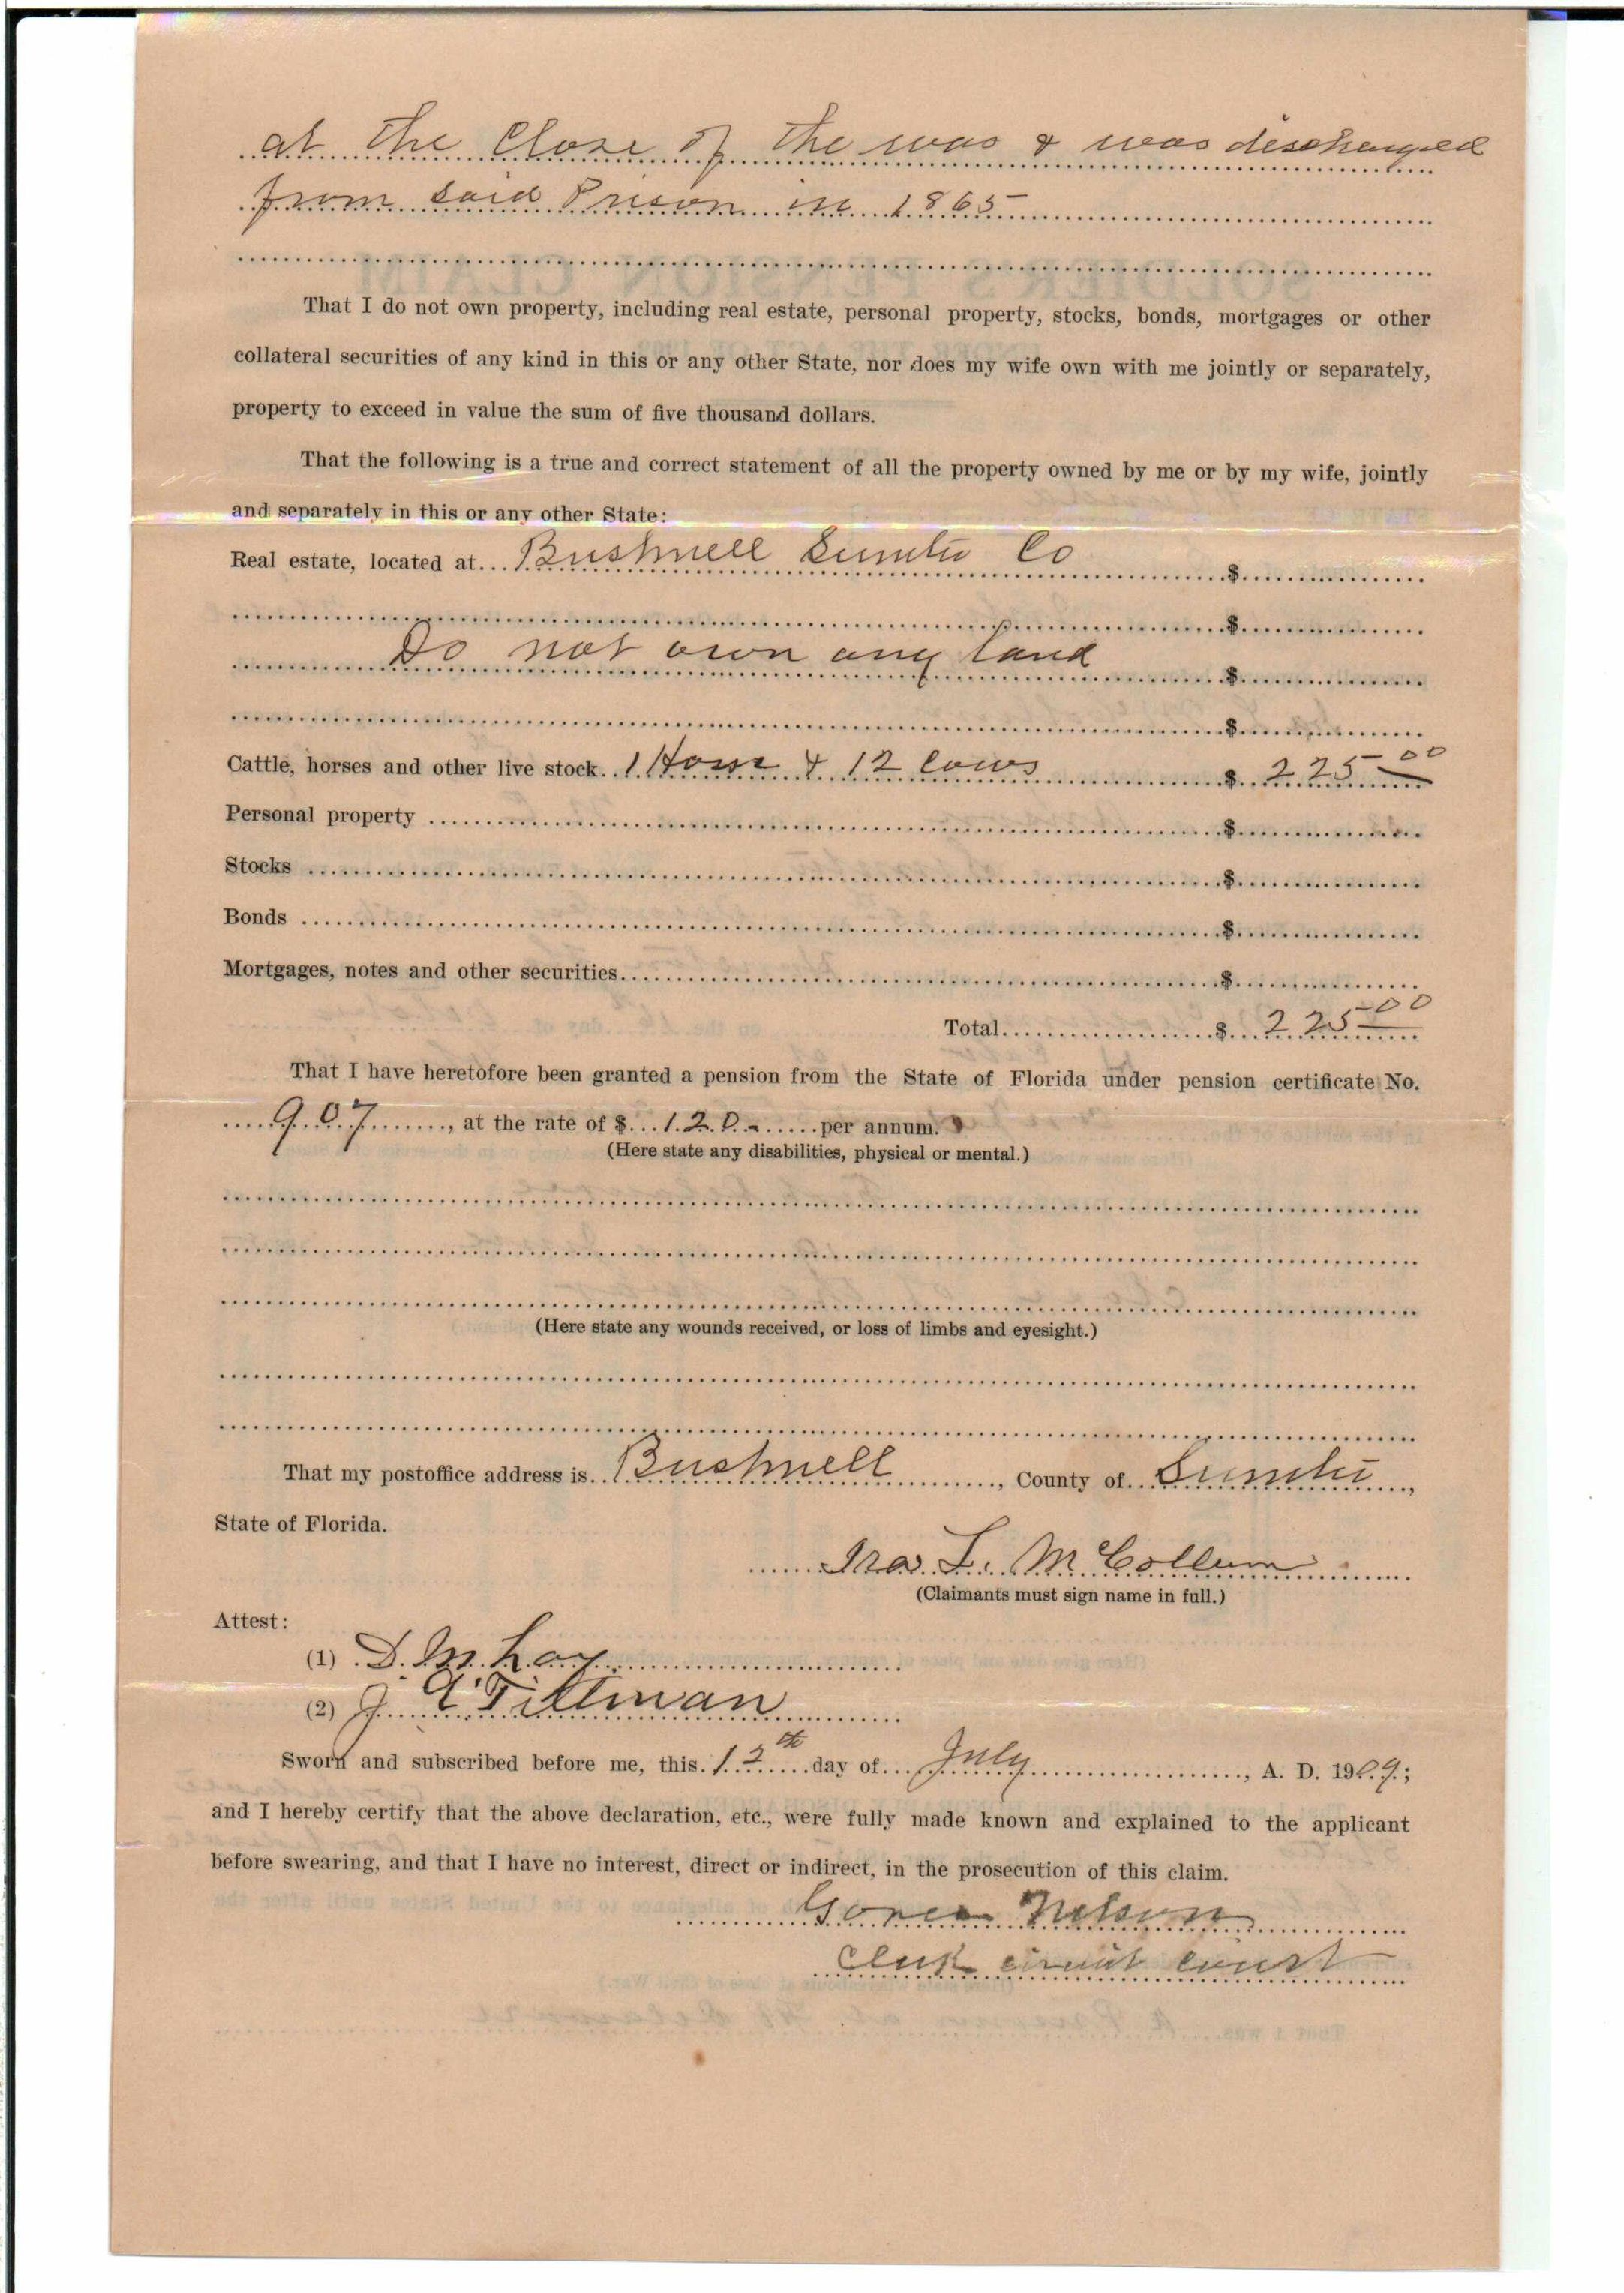 at the Close of the was & was deschanged
from said Prison in 1865
That I do not own property, including real estate, personal property, stocks, bonds, mortgages or other
collateral securities of any kind in this or any other State, nor does my wife own with me jointly or separately,
property to exceed in value the sum of five thousand dollars.
That the following is a true and correct statement of all the property owned by me or by my wife, jointly
and separately in this or any other State:
Real estate, located at Bushnell Sumter Co $
$
Do not own any land $
$
Cattle, horses and other live stock 1 Horse & 12 Cows $ 225 00
Personal property $
Stocks $
Bonds $
Mortgages, notes and other securities $
Total $ 225 00
That I have heretofore been granted a pension from the State of Florida under pension certificate No.
907, at the rate of $ 120 per annum.
(Here state any disabilities, physical or mental.)
(Here state any wounds received, or loss of limbs and eyesight.)
That my postoffice address is Bushnell, County of Sumter,
State of Florida.
Ira L. McCollum
(Claimants must sign name in full.)
Attest:
(1) D. M. Lay
(2) J. E. Tillman
Sworn and subscribed before me, this 12th day of July, A. D. 1909;
and I hereby certify that the above declaration, etc., were fully made known and explained to the applicant
before swearing, and that I have no interest, direct or indirect, in the prosecution of this claim.
Nelson
Clerk circuit court